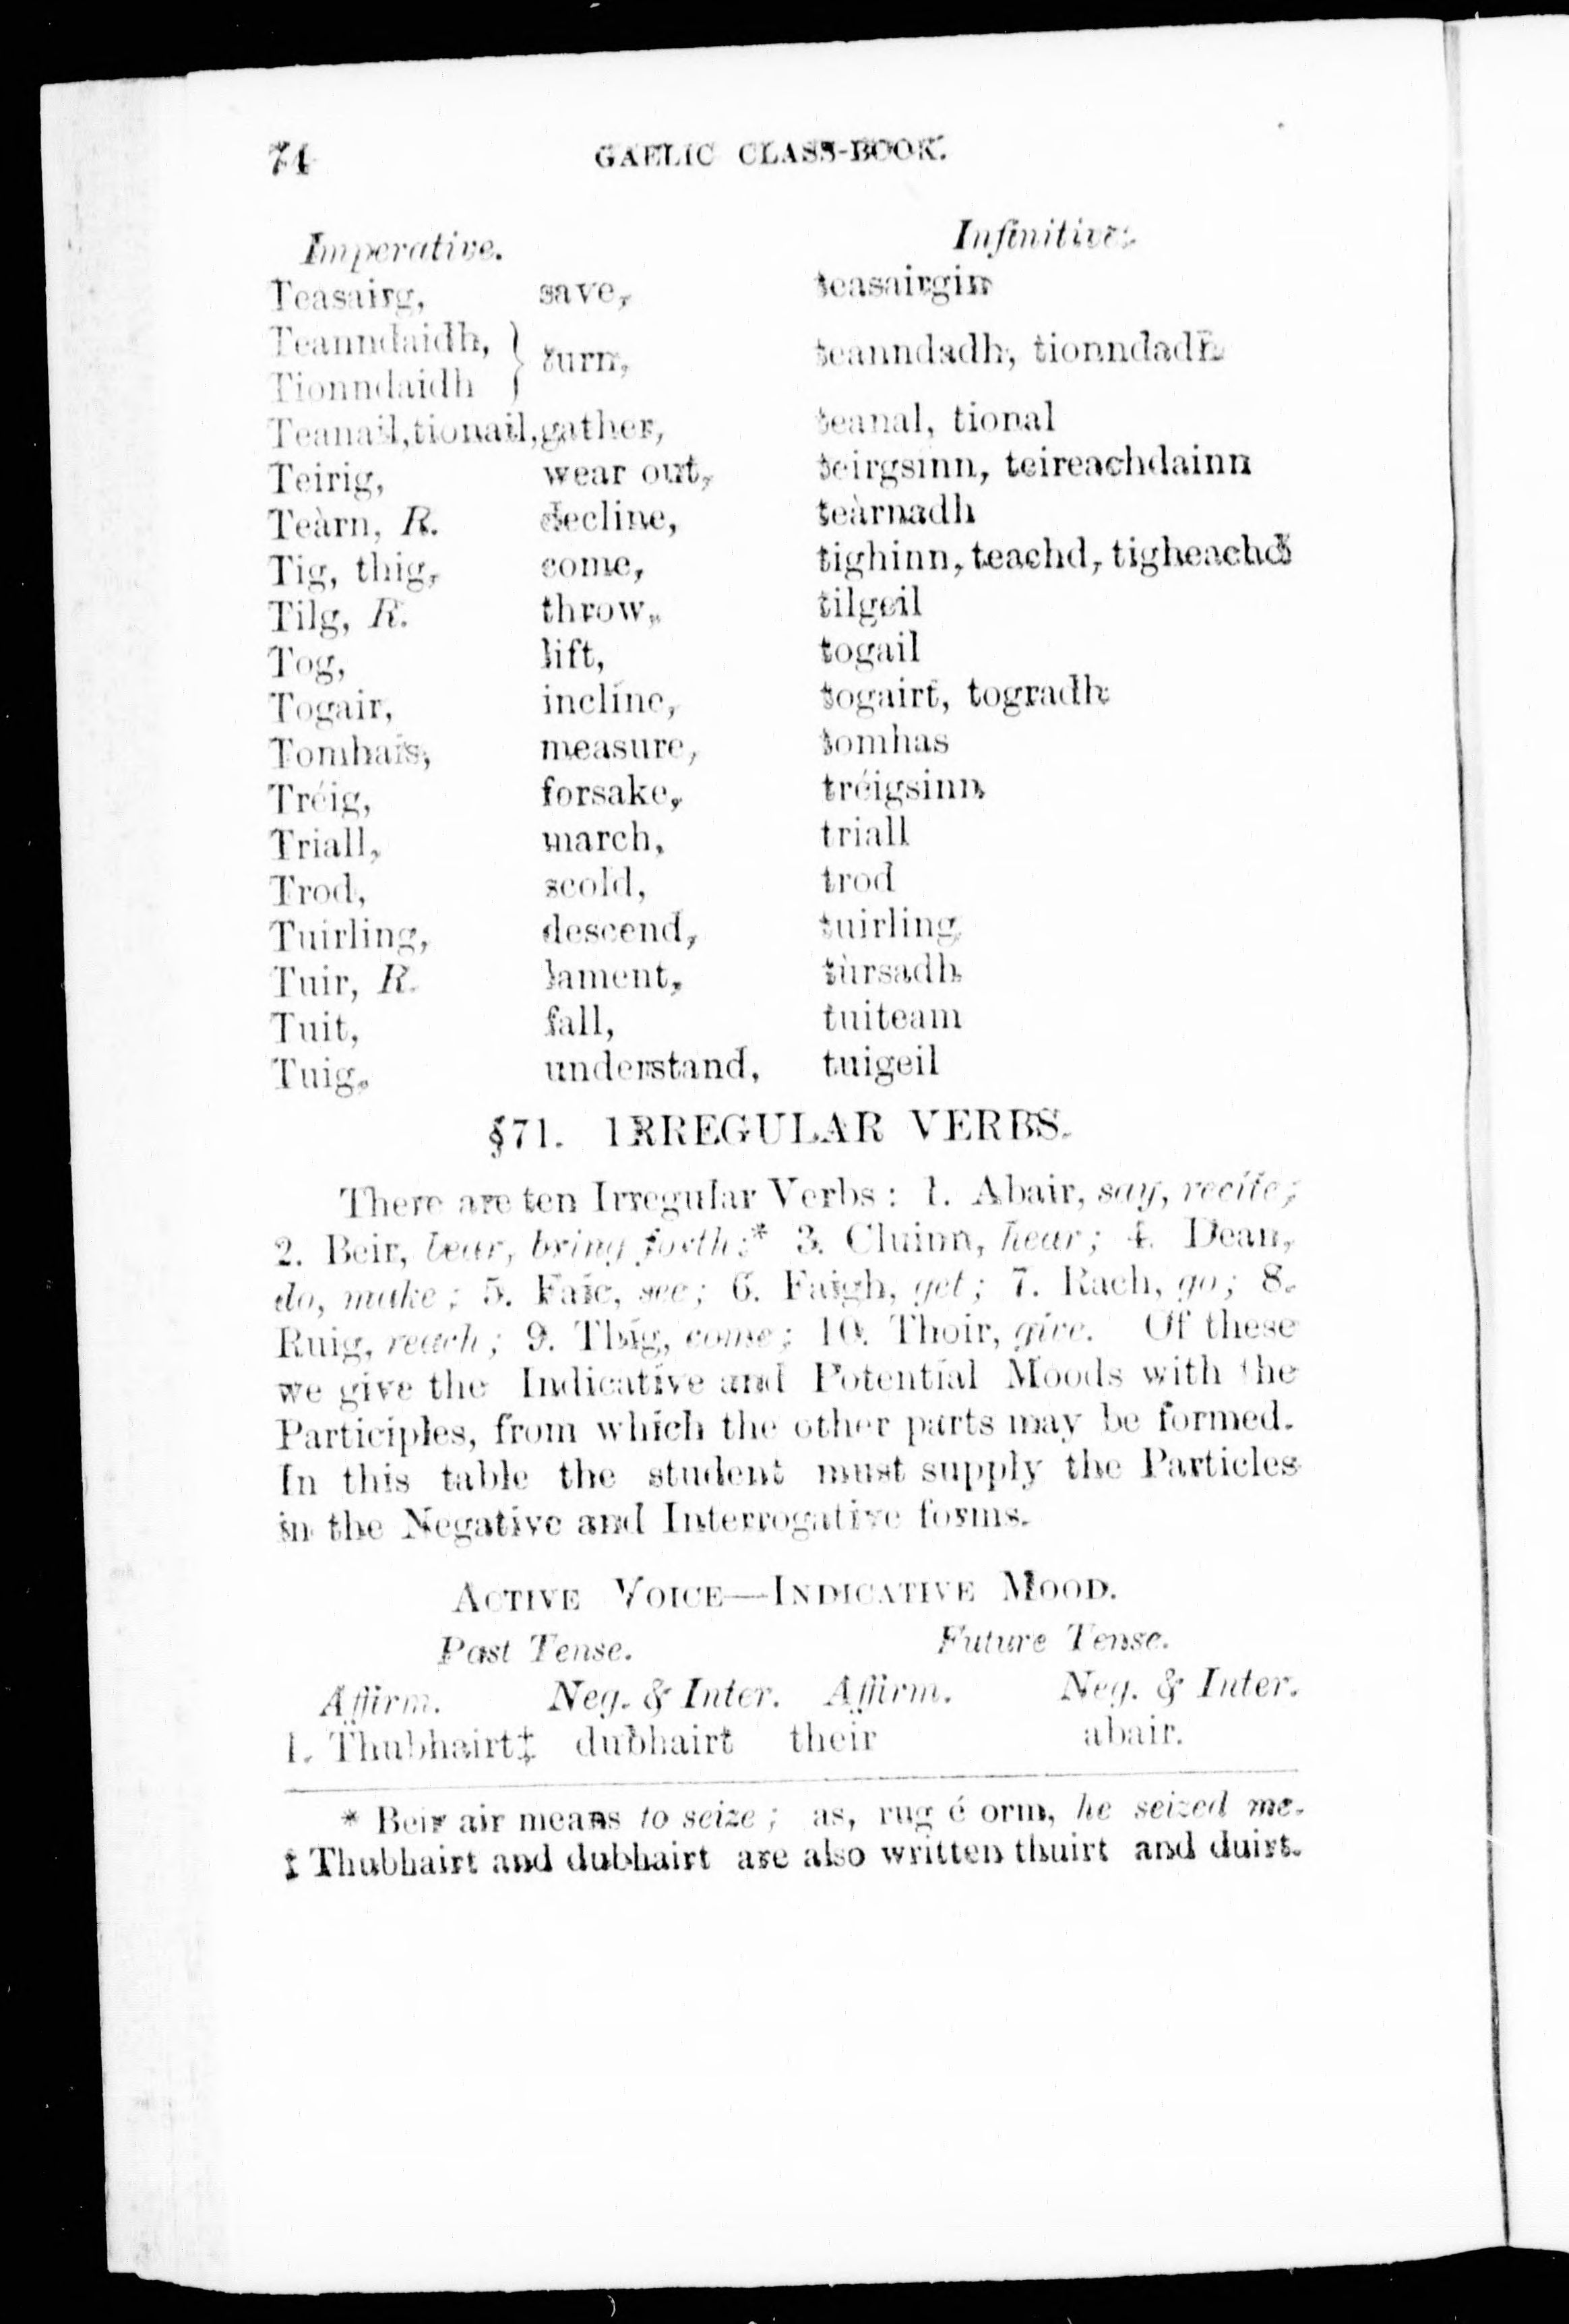 74 GAELIC CLASS-BOOK.
Imperative. Infinitive.
Teasairg, save, teasairgin
Teanndaidh, } turn, teanndadh, tionndadh
Tionndaidh
Teanail, tionail, gather, teanal, tional
Teirig, wear out, teirgsinn, teireachdainn
Teàrn, R. decline, teàrnadh
Tig, thig, come, tighinn, teachd, tigheachd
Tilg, R. throw, tilgeil
Tog, lift, togail
Togair, incline, togairt, togradh
Tomhais, measure, tomhas
Tréig, forsake, tréigsinn
Triall, march, triall
Trod, scold, trod
Tuirling, descend, tuirling
Tuir, R. lament, tùrsadh
Tuit, fall, tuiteam
Tuig, understand, tuigeil
§71. IRREGULAR VERBS.
There are ten Irregular Verbs: 1. Abair, say, recite;
2. Beir, bear, bring forth;* 3. Cluinn, hear; 4. Dean,
do, make; 5. Faic, see; 6. Faigh, get; 7. Rach, go; 8.
Ruig, reach; 9. Thig, come; 10. Thoir, give. Of these
we give the Indicative and Potential Moods with the
Participles, from which the other parts may be formed.
In this table the student must supply the Particles
in the Negative and Interrogative forms.
ACTIVE VOICE—INDICATIVE MOOD.
Past Tense. Future Tense.
Affirm. Neg. & Inter. Affirm. Neg. & Inter.
1. Thubhairt‡ dubhairt their abair.
* Beir air means to seize; as, rug é orm, he seized me.
‡ Thubhairt and dubhairt are also written thuirt and duirt.